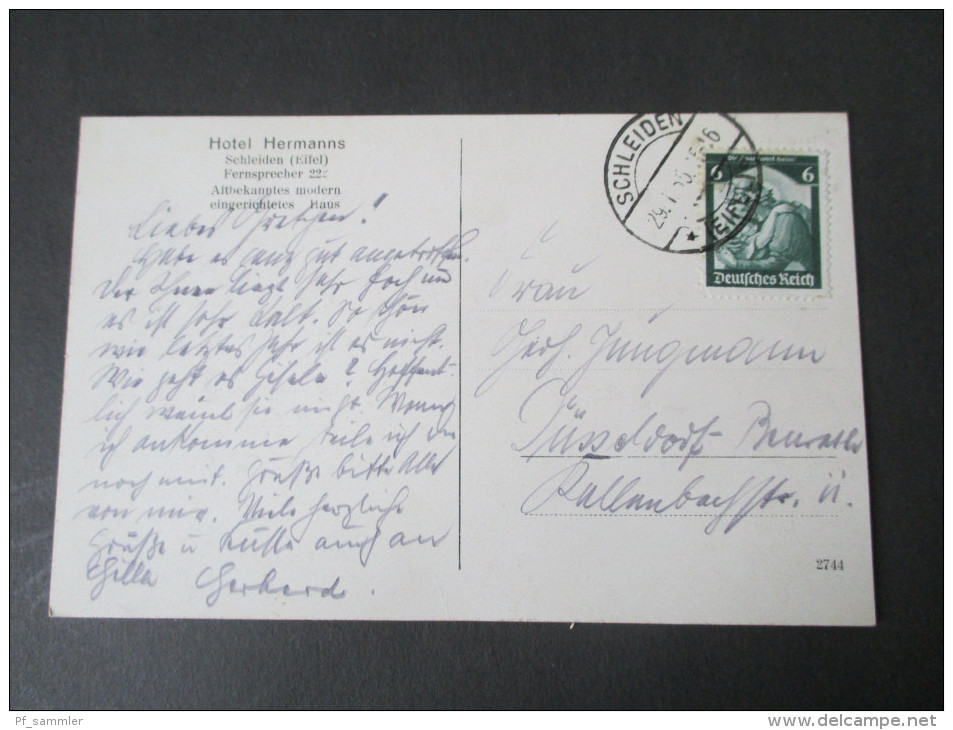 Hotel Hermanns
Schleiden (Eifel)
Fernsprecher 222
Altbekanntes modern
eingerichtetes Haus
Liebes Gretchen!
Habe es ganz gut angetroffen.
Der Schnee liegt sehr hoch und
es ist sehr kalt. So schön
wie letztes Jahr ist es nicht.
Wie geht es Gisela? Hoffent-
lich weint sie nicht. Wann
ich ankomme, teile ich dir
noch mit. Grüße bitte Alle
von mir. Viele herzliche
Grüße u Küsse auch an
Gerhard.
SCHLEIDEN
(EIFEL)
29.1.
6 6
Deutsches Reich
Frau
Gerh. Jungmann
Düsseldorf-Benrath
Kallenbachstr.
2744
Pf_sammler
www.delcampe.net